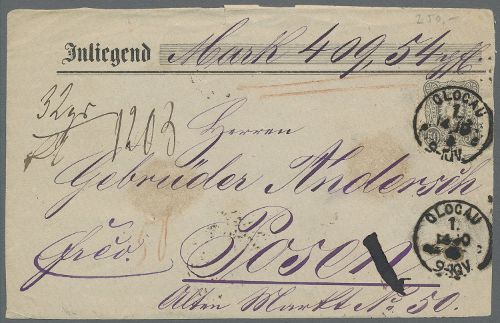 250,-
Inliegend Mark 409,54 pff.
32 gr
1203
Herren
Gebrüder Andersch
frco.
Posen
Alten Markt No. 50.
GLOCAU
1.
9-10V.
GLOCAU
1.
9-10V.